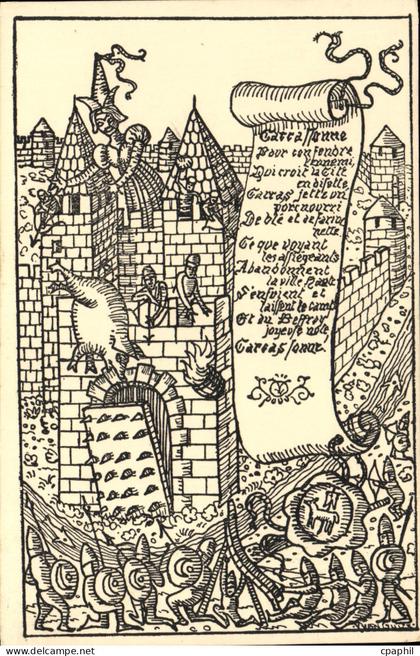 Carcas sonne
Pour confondre
l'ennemi,
Qui croit la Cité
en disette
Carcas jette un
porc nourri
De blé et de farine
nette.
Ce que voyant
les assiégeants
Abandonnent
la ville haute
S'enfuient et
laissent le camp
Et du Beffroy
joyeuse note
Carcas sonne.
www.cpaphil.com